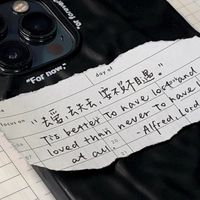 for forever.
"For now.
day of
focus on
"去爱，去失去，要不负相遇。"
Tis better to have lost and
loved than never to have l
at all.
- Alfred, Lord